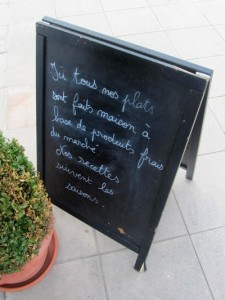 Ici tous nos plats
sont faits maison à
base de produits frais
du marché.
Nos recettes
suivent les
saisons.